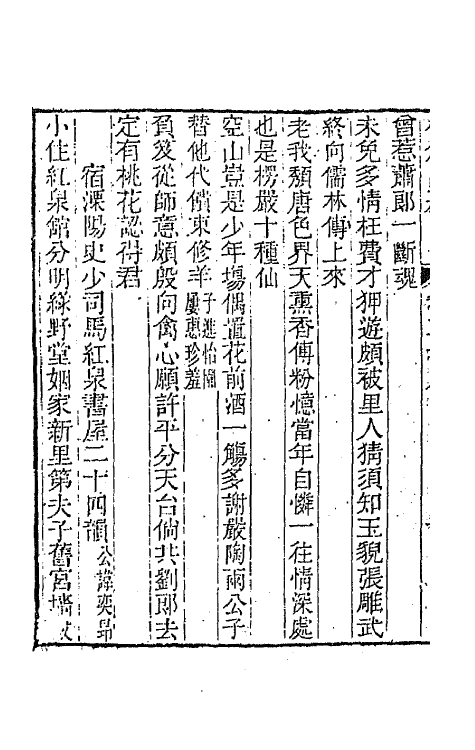 曾惹蕭郎一斷魂
未免多情枉費才狎遊頗被里人猜須知玉貌張雕武
終向儒林傳上來
老我頹唐色界天熏香傅粉憶當年自憐一往情深處
也是楞嚴十種仙
空山豈是少年場偶置花前酒一觴多謝嚴陶兩公子
替他代償束修羊子進怡園屢惠珍羞
負笈從師意頗殷向禽心願許平分天台倘共劉郎去
定有桃花認得君
宿溧陽史少司馬紅泉書屋二十四韻公諱奕昂
小住紅泉館分明綠野堂姻家新里第夫子舊宮牆